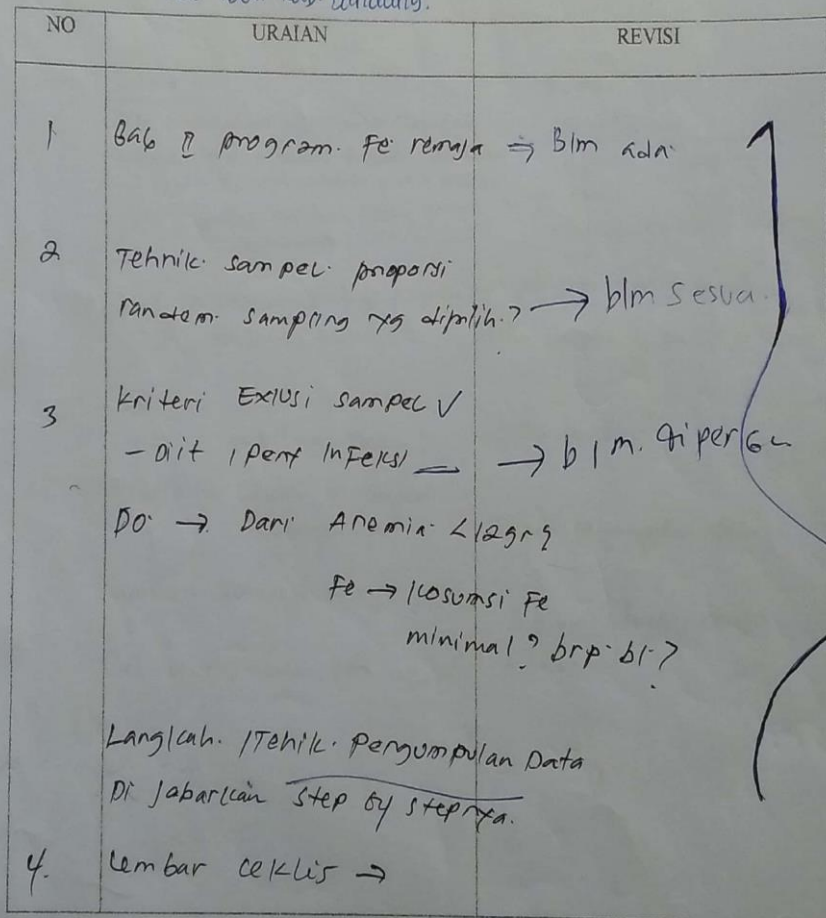 NO URAIAN REVISI
1 Bab II program. Fe remaja ⇒ Blm ada.
2 Tehnik. sampel. proporsi
random. sampling yg dipilih.? → blm sesuai
3 Kriteri Exlusi sampel √
- Diit, peny infeksi → blm. diperbu
DO. → Dari Anemia < 12gr%
Fe → Kosumsi Fe
minimal? brp. bl.?
Langkah. /Tehik. Pengumpulan Data
Di Jabarkan step by stepnya.
4. Lembar ceklis →